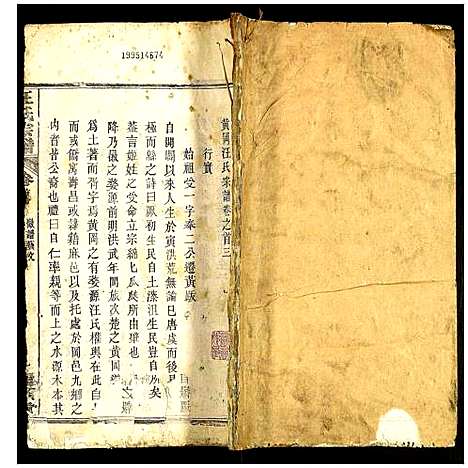 199514674
黄岡汪氏宗譜卷之首三
行實
始祖受一字奉二公遷黄
自開闢以來人生於寅洪荒無論已唐虞而後
極而緜之詩曰厥初生民自土漆沮生民豈自
荃言姓受命立宗綿七瓜瓞所由
降乃徽之婺源前明洪武年間族次楚之黄岡
爲土著而胥字焉黄岡之有婺源汪氏權輿在此自
而或僑寓壽昌或隸籍麻邑以及托處於岡邑九鄉之
内者皆公裔也禮曰自仁率親等而上之水源木本其
汪氏宗譜